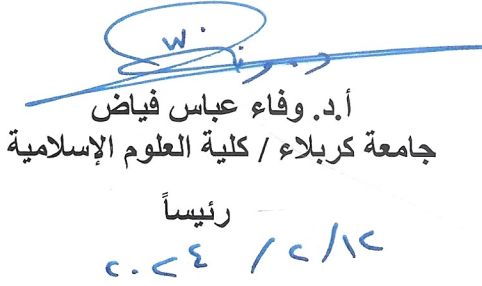 أ.د. وفاء عباس فياض
جامعة كربلاء / كلية العلوم الإسلامية
رئيساً
٢٠٢٤ / ٢ / ١٢